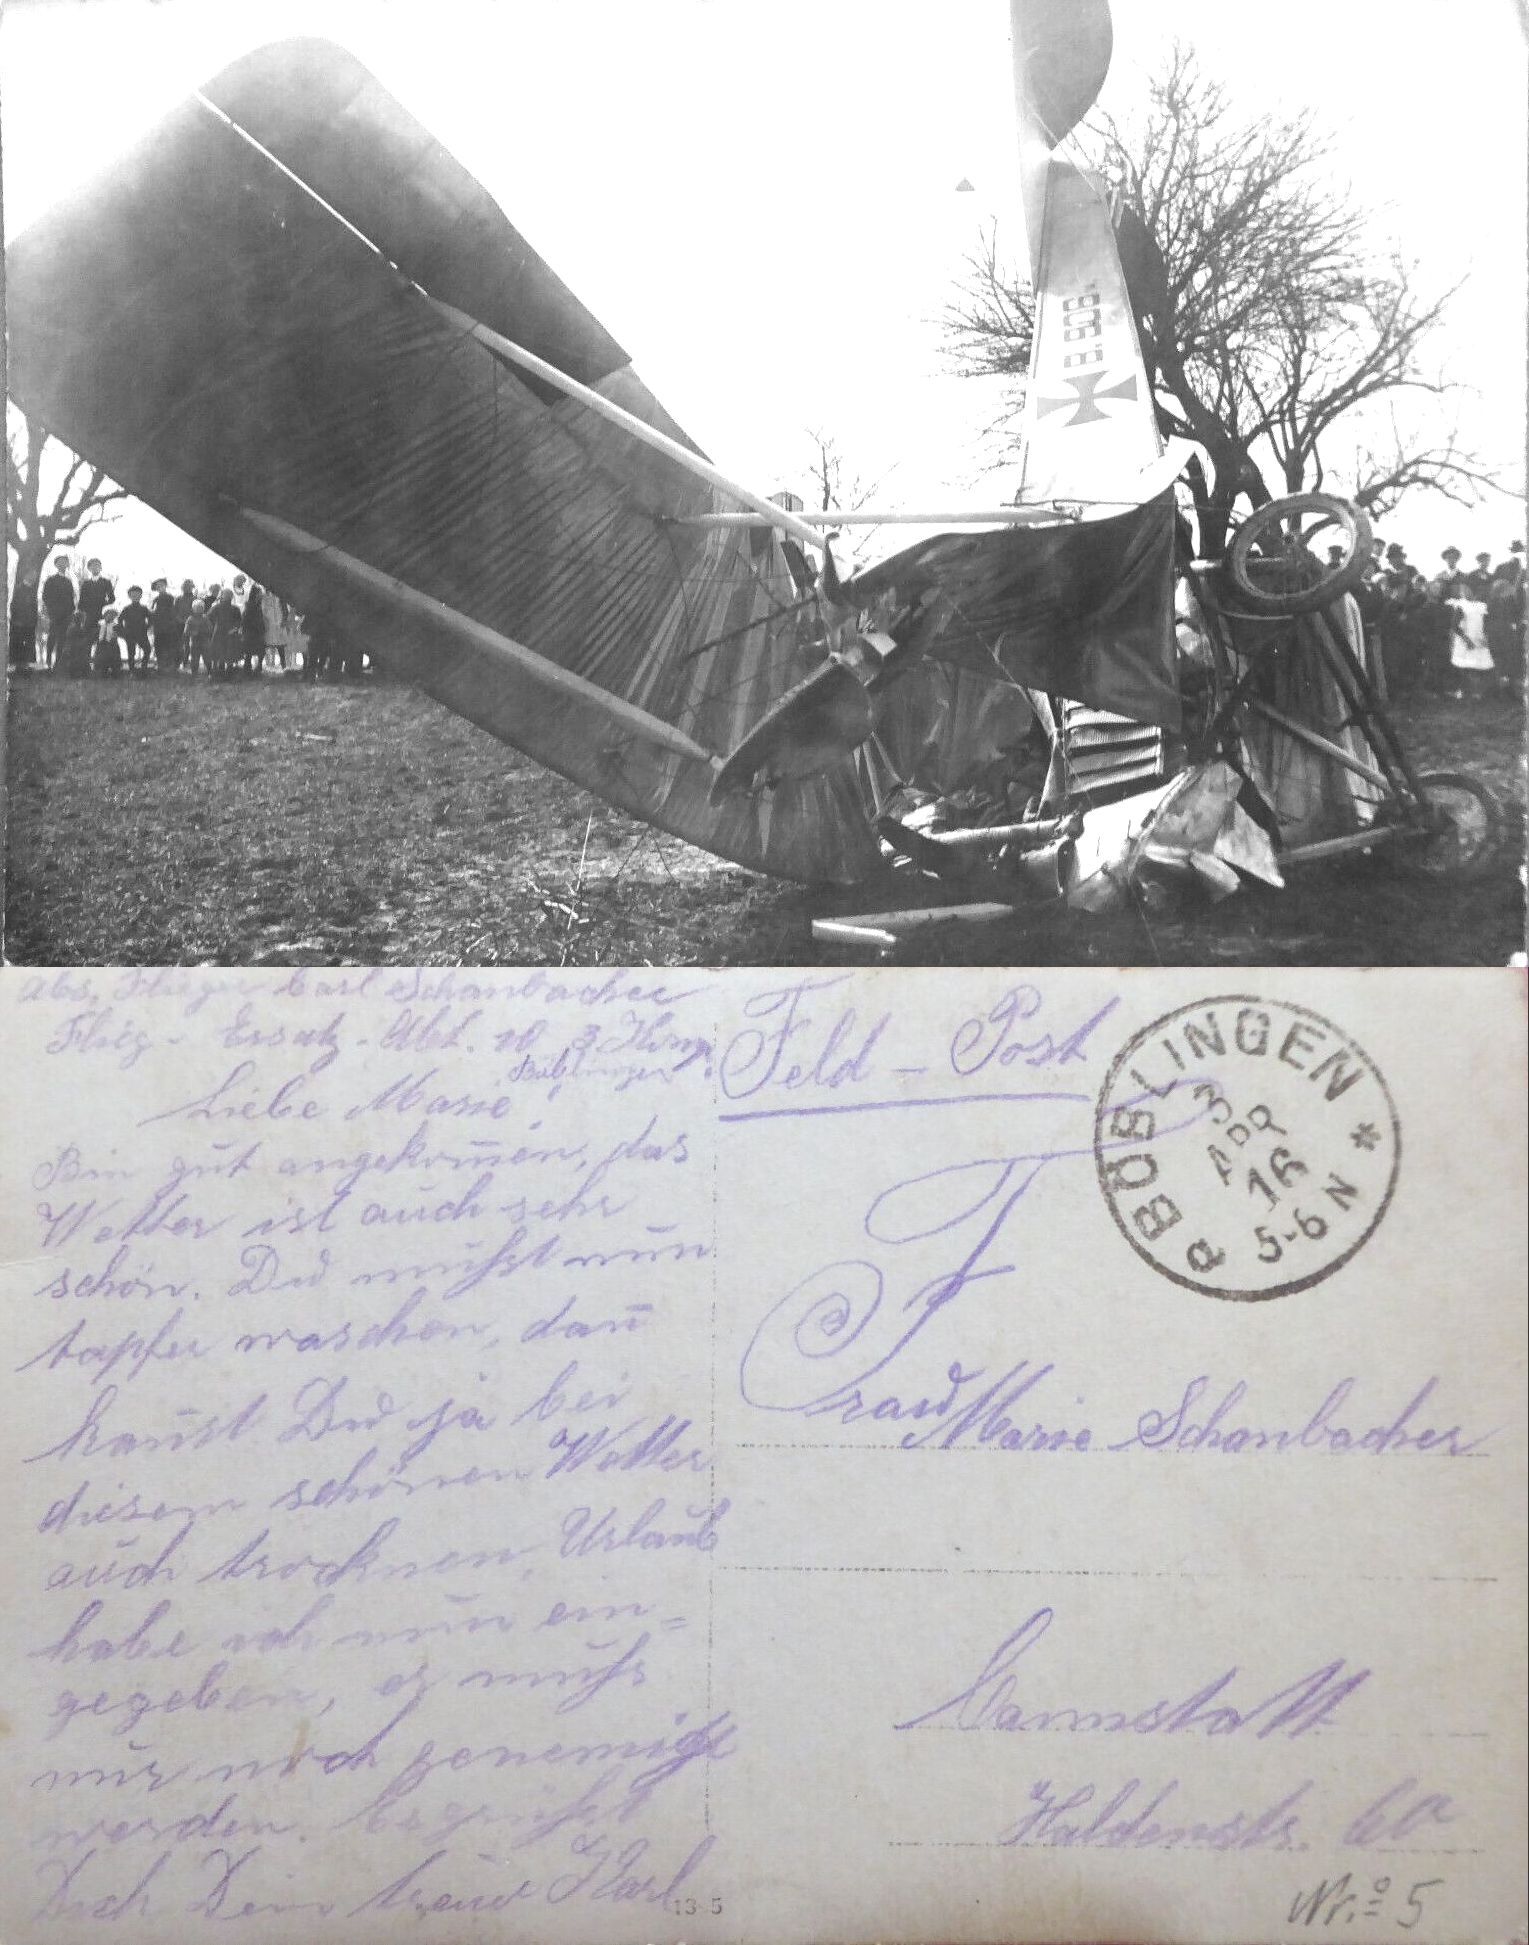 B.508.
Abs. Flieger Carl Schanbacher
Flieg-Ersatz-Abt. 10 3. Komp.
Böblingen
Liebe Marie!
Bin gut angekom̄en, das
Wetter ist auch sehr
schön. Du mußt nun
tapfer waschen, dan̄
kan̄st Du ja bei
diesem schönen Wetter
auch trocknen, Urlaub
habe ich nun ein=
gegeben, er muß
nur noch genemigt
werden. Es grüßt
Dich Dein treuer Karl
13 5
Feld-Post
BÖBLINGEN
3
APR
16
5-6 N
a
Frau Marie Schanbacher
Cannstatt
Haldenstr. 60
Nr.º 5